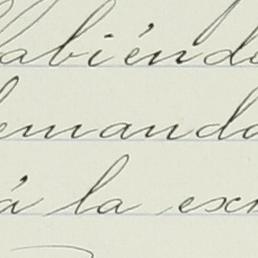 abiénd
emanda
á la esc